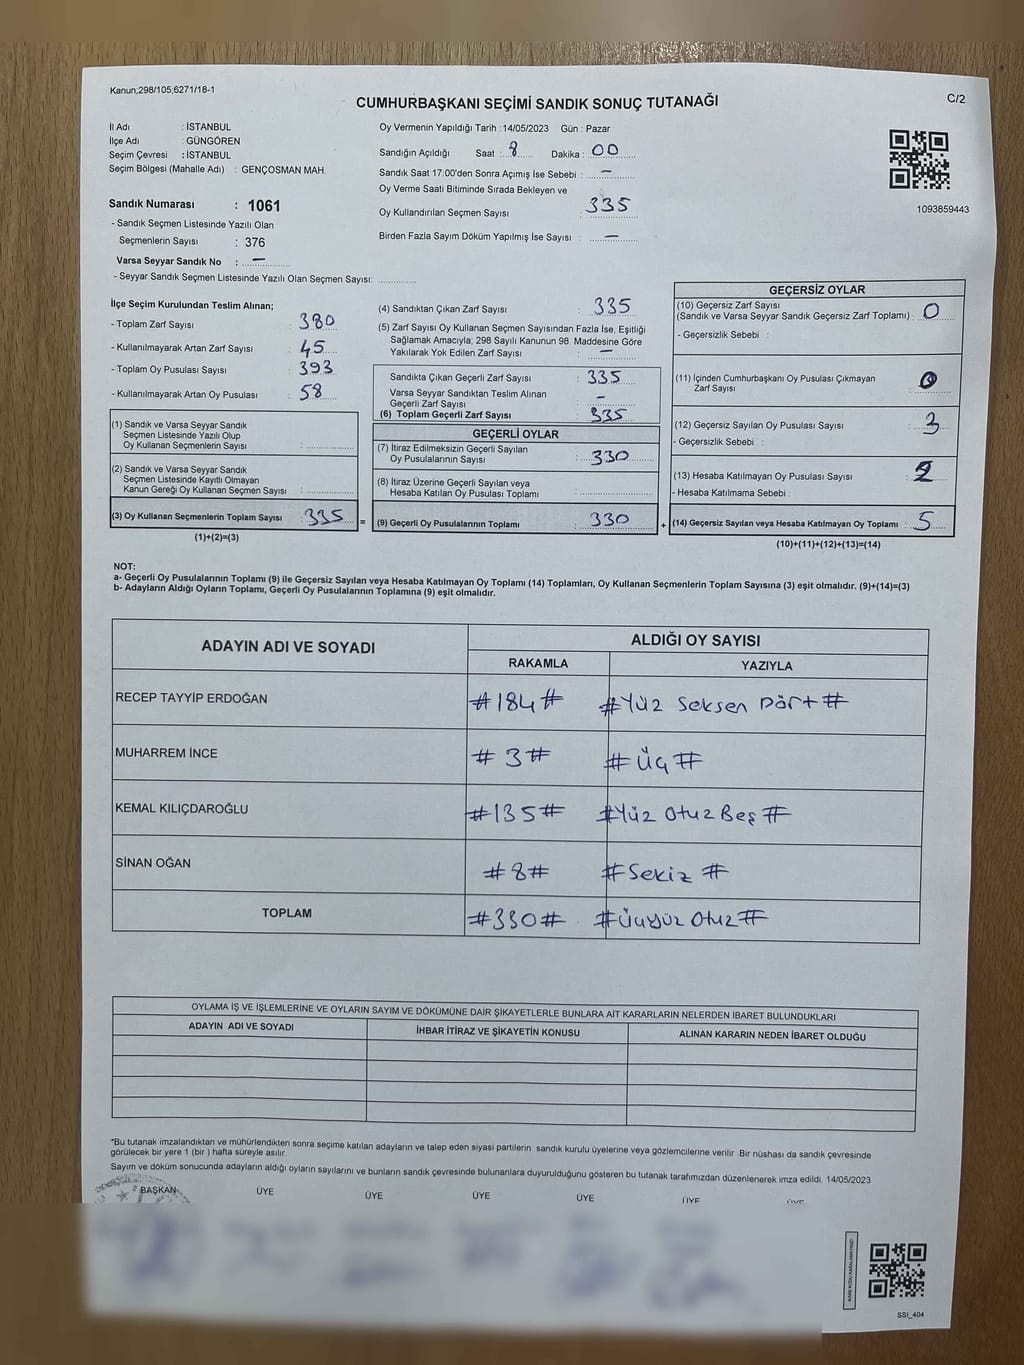 Kanun;298/105;6271/18-1
CUMHURBAŞKANI SEÇİMİ SANDIK SONUÇ TUTANAĞI
C/2
İl Adı : İSTANBUL
İlçe Adı : GÜNGÖREN
Seçim Çevresi : İSTANBUL
Seçim Bölgesi (Mahalle Adı) : GENÇOSMAN MAH.
Sandık Numarası : 1061
- Sandık Seçmen Listesinde Yazılı Olan
Seçmenlerin Sayısı : 376
Varsa Seyyar Sandık No : —
- Seyyar Sandık Seçmen Listesinde Yazılı Olan Seçmen Sayısı:
Oy Vermenin Yapıldığı Tarih : 14/05/2023 Gün : Pazar
Sandığın Açıldığı Saat : 8 Dakika : 00
Sandık Saat 17:00'den Sonra Açımış İse Sebebi : —
Oy Verme Saati Bitiminde Sırada Bekleyen ve
Oy Kullandırılan Seçmen Sayısı : 335
Birden Fazla Sayım Döküm Yapılmış İse Sayısı : —
1093859443
İlçe Seçim Kurulundan Teslim Alınan;
- Toplam Zarf Sayısı : 380
- Kullanılmayarak Artan Zarf Sayısı : 45
- Toplam Oy Pusulası Sayısı : 393
- Kullanılmayarak Artan Oy Pusulası : 58
(1) Sandık ve Varsa Seyyar Sandık
Seçmen Listesinde Yazılı Olup
Oy Kullanan Seçmenlerin Sayısı :
(2) Sandık ve Varsa Seyyar Sandık
Seçmen Listesinde Kayıtlı Olmayan
Kanun Gereği Oy Kullanan Seçmen Sayısı :
(3) Oy Kullanan Seçmenlerin Toplam Sayısı : 335
(1)+(2)=(3)
(4) Sandıktan Çıkan Zarf Sayısı : 335
(5) Zarf Sayısı Oy Kullanan Seçmen Sayısından Fazla İse, Eşitliği
Sağlamak Amacıyla; 298 Sayılı Kanunun 98. Maddesine Göre
Yakılarak Yok Edilen Zarf Sayısı : —
Sandıkta Çıkan Geçerli Zarf Sayısı : 335
Varsa Seyyar Sandıktan Teslim Alınan
Geçerli Zarf Sayısı : —
(6) Toplam Geçerli Zarf Sayısı : 335
GEÇERLİ OYLAR
(7) İtiraz Edilmeksizin Geçerli Sayılan
Oy Pusulalarının Sayısı : 330
(8) İtiraz Üzerine Geçerli Sayılan veya
Hesaba Katılan Oy Pusulası Toplamı :
= (9) Geçerli Oy Pusulalarının Toplamı : 330
GEÇERSİZ OYLAR
(10) Geçersiz Zarf Sayısı
(Sandık ve Varsa Seyyar Sandık Geçersiz Zarf Toplamı) : 0
- Geçersizlik Sebebi :
(11) İçinden Cumhurbaşkanı Oy Pusulası Çıkmayan
Zarf Sayısı : 0
(12) Geçersiz Sayılan Oy Pusulası Sayısı : 3
- Geçersizlik Sebebi :
(13) Hesaba Katılmayan Oy Pusulası Sayısı : 2
- Hesaba Katılmama Sebebi :
+ (14) Geçersiz Sayılan veya Hesaba Katılmayan Oy Toplamı : 5
(10)+(11)+(12)+(13)=(14)
NOT:
a- Geçerli Oy Pusulalarının Toplamı (9) ile Geçersiz Sayılan veya Hesaba Katılmayan Oy Toplamı (14) Toplamları, Oy Kullanan Seçmenlerin Toplam Sayısına (3) eşit olmalıdır. (9)+(14)=(3)
b- Adayların Aldığı Oyların Toplamı, Geçerli Oy Pusulalarının Toplamına (9) eşit olmalıdır.
ADAYIN ADI VE SOYADI ALDIĞI OY SAYISI
RAKAMLA YAZIYLA
RECEP TAYYİP ERDOĞAN #184# #Yüz Seksen Dört#
MUHARREM İNCE #3# #Üç#
KEMAL KILIÇDAROĞLU #135# #Yüz Otuz Beş#
SİNAN OĞAN #8# #Sekiz#
TOPLAM #330# #Üçyüz Otuz#
OYLAMA İŞ VE İŞLEMLERİNE VE OYLARIN SAYIM VE DÖKÜMÜNE DAİR ŞİKAYETLERLE BUNLARA AİT KARARLARIN NELERDEN İBARET BULUNDUKLARI
ADAYIN ADI VE SOYADI İHBAR İTİRAZ VE ŞİKAYETİN KONUSU ALINAN KARARIN NEDEN İBARET OLDUĞU
*Bu tutanak imzalandıktan ve mühürlendikten sonra seçime katılan adayların ve talep eden siyasi partilerin sandık kurulu üyelerine veya gözlemcilerine verilir .Bir nüshası da sandık çevresinde
görülecek bir yere 1 (bir ) hafta süreyle asılır.
Sayım ve döküm sonucunda adayların aldığı oyların sayılarını ve bunların sandık çevresinde bulunanlara duyurulduğunu gösteren bu tutanak tarafımızdan düzenlenerek imza edildi. 14/05/2023
BAŞKAN ÜYE ÜYE ÜYE ÜYE ÜYE ÜYE
SSI_404